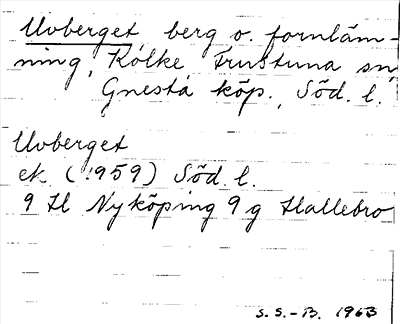 Uvberget berg o. fornläm-
ning, Kölke Frustuna sn,
Gnesta köp., Söd. l.
Uvberget
ek. (1959) Söd. l.
9 H Nyköping 9 g Hallebro
S. S.-B. 1963